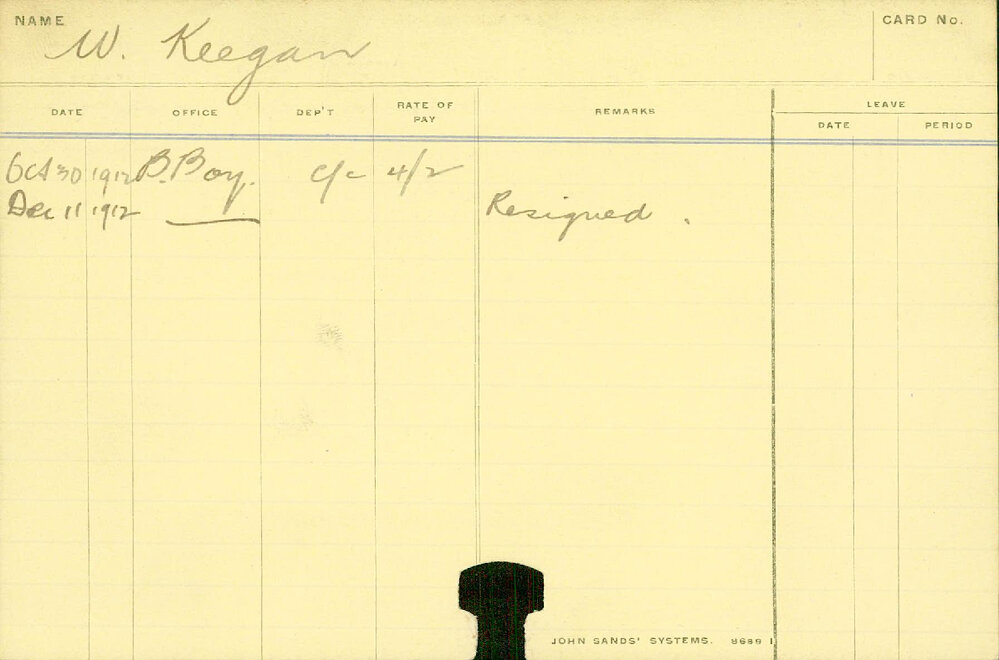 NAME W. Keegan CARD No.
DATE OFFICE DEP'T RATE OF PAY REMARKS LEAVE
DATE PERIOD
Oct 30 1912 B. Boy. c/c 4/2
Dec 11 1912 Resigned.
JOHN SANDS' SYSTEMS. 8689 1